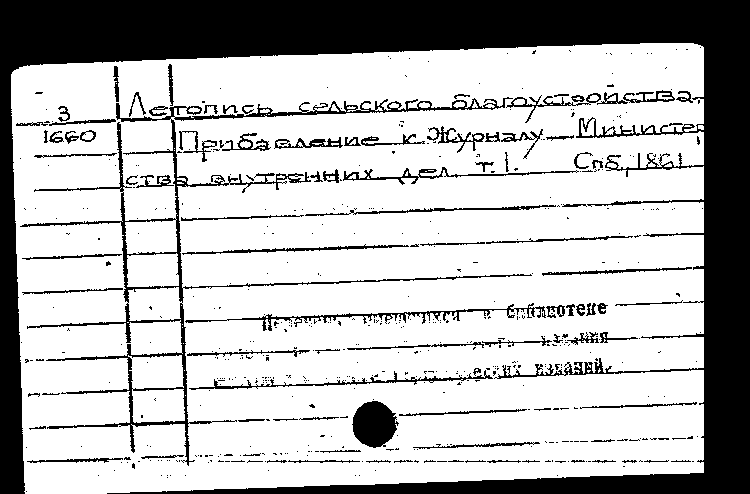 3 Летопись сельского благоустройства.
1660 Прибавление к Журналу Министер
ства внутренних дел. т.1. Спб, 1861
Перечень имеющихся в библиотеке
издания
изданий.